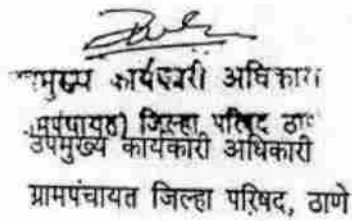 मुख्य कार्यकारी अधिकारी
जिल्हा परिषद
उपमुख्य कार्यकारी अधिकारी
ग्रामपंचायत जिल्हा परिषद, ठाणे